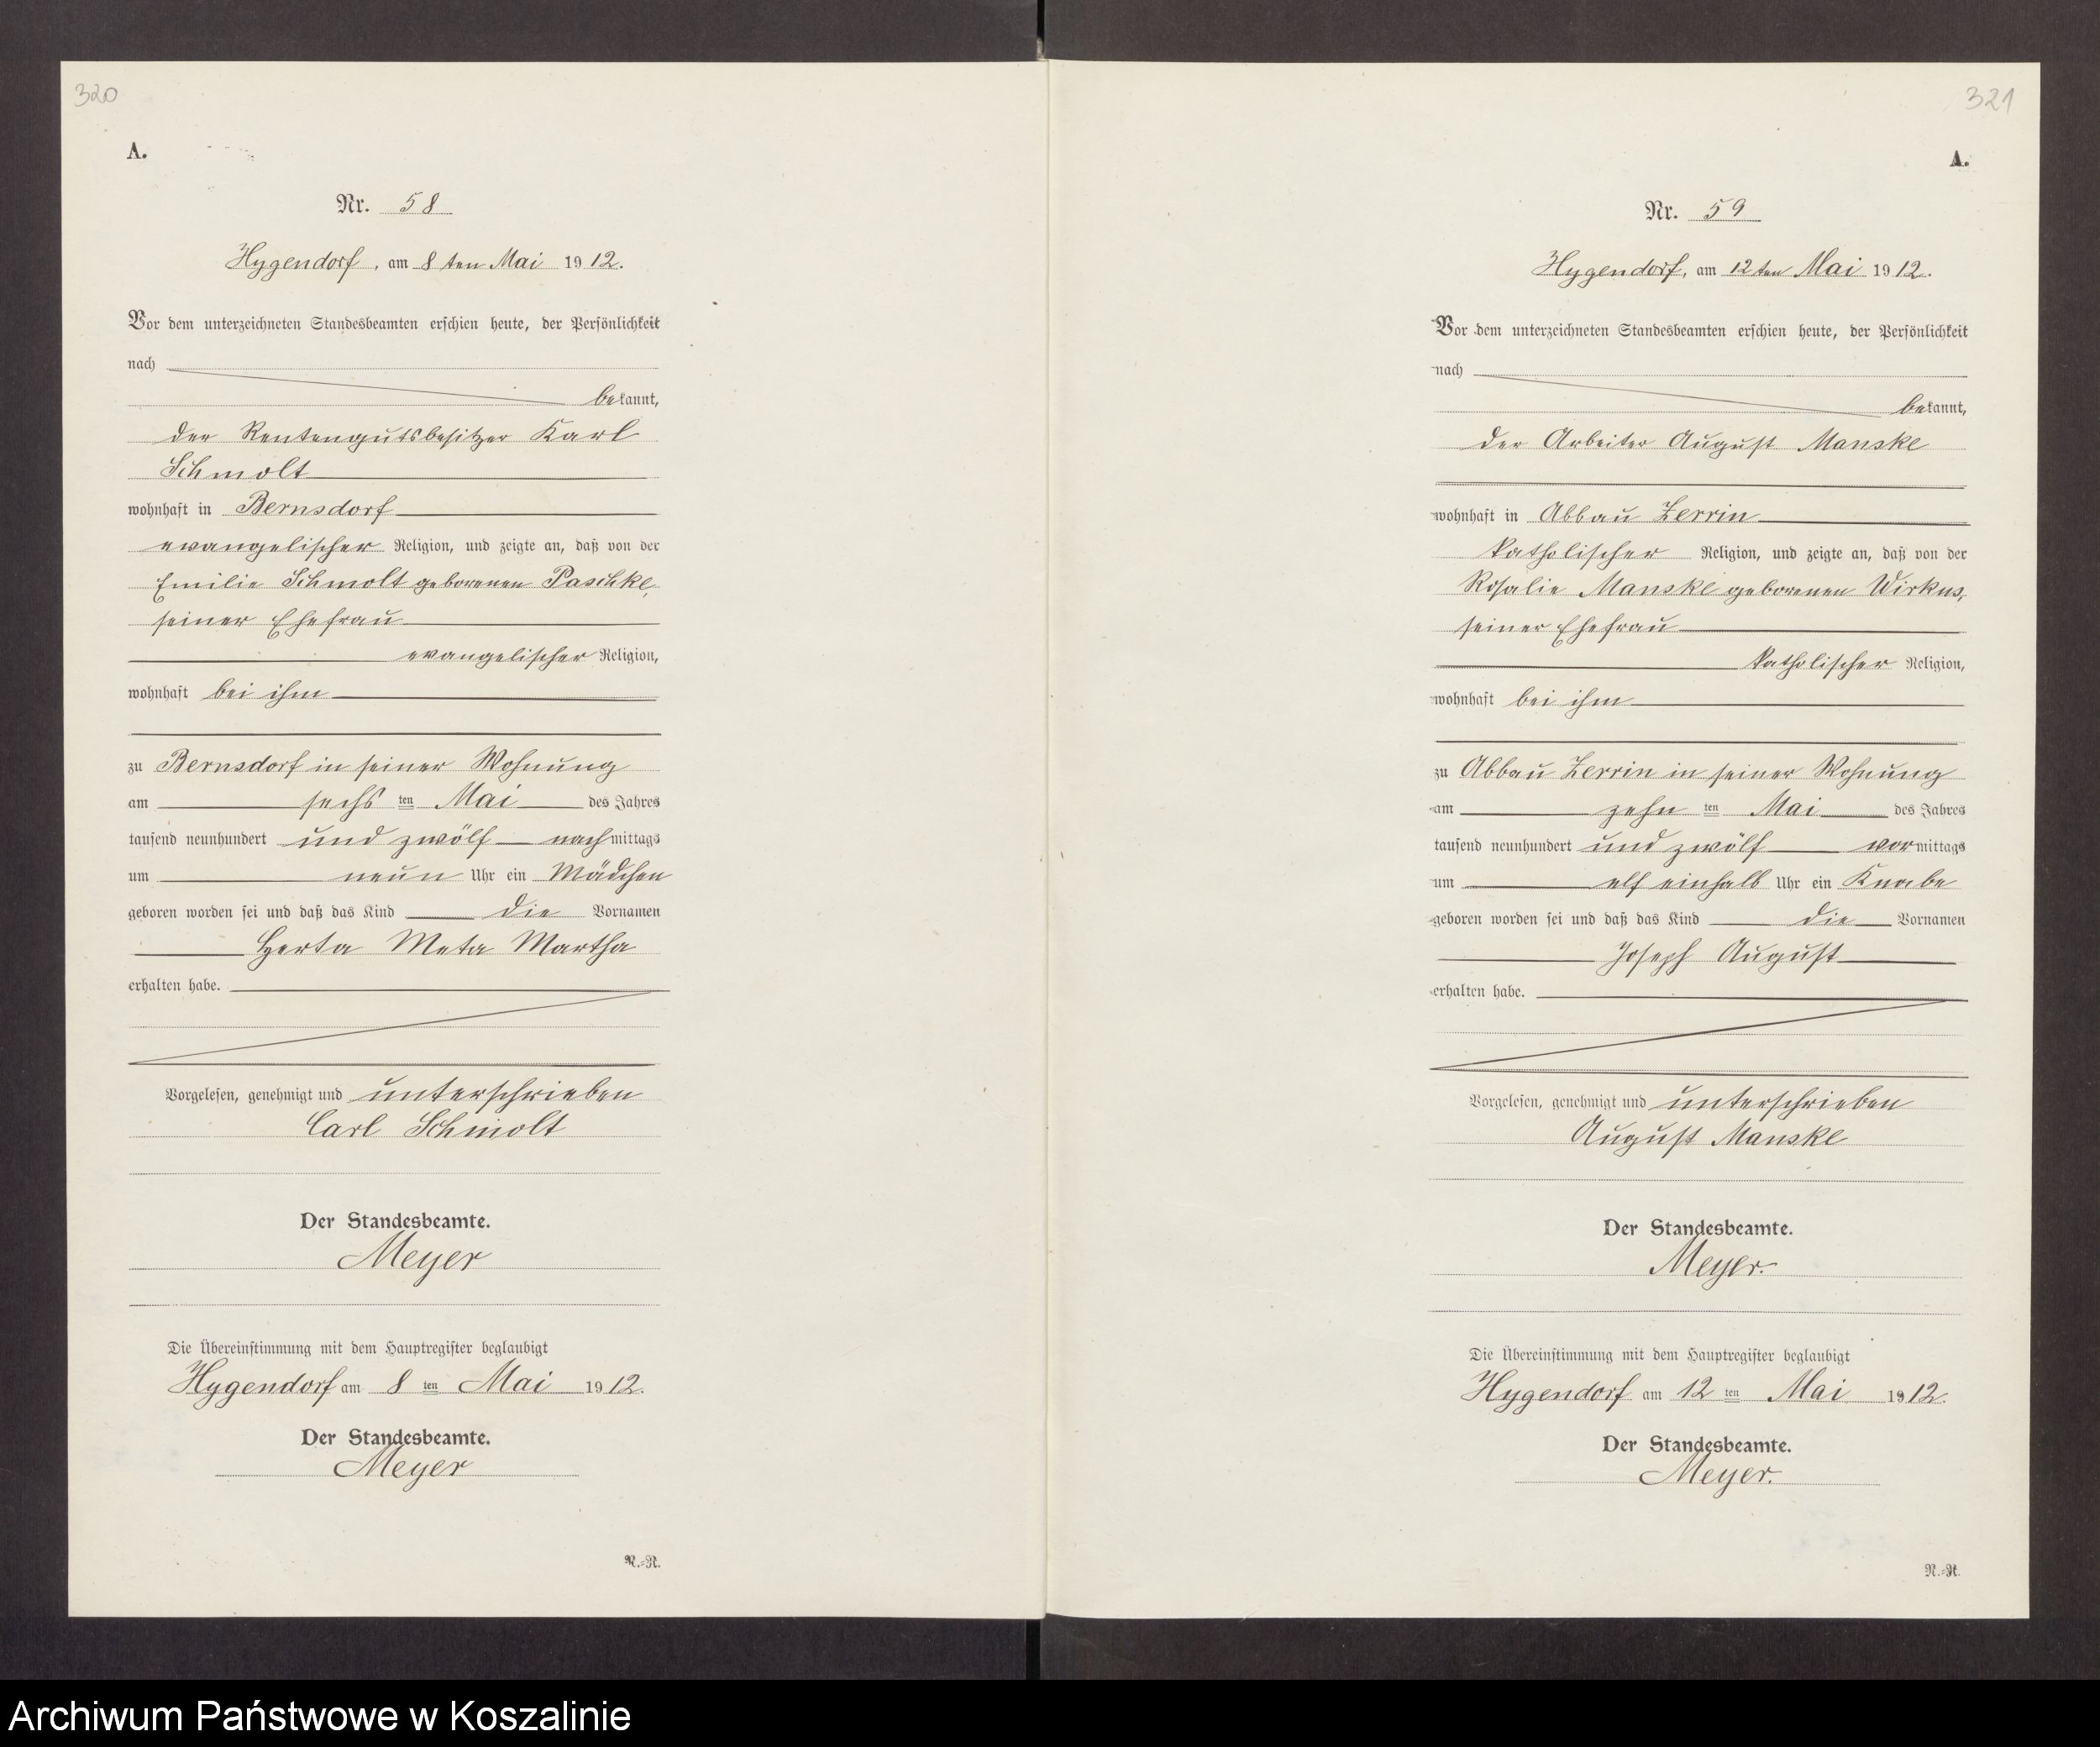 320
A.
Nr. 58
Hygendorf, am 8ten Mai 1912.
Vor dem unterzeichneten Standesbeamten erschien heute, der Persönlichkeit
nach
bekannt,
der Rentengutsbesitzer Karl
Schmolt
wohnhaft in Bernsdorf
evangelischer Religion, und zeigte an, daß von der
Emilie Schmolt geborenen Paschke,
seiner Ehefrau
evangelischer Religion,
wohnhaft bei ihm
zu Bernsdorf in seiner Wohnung
am sechs ten Mai des Jahres
tausend neunhundert und zwölf nachmittags
um neun Uhr ein Mädchen
geboren worden sei und daß das Kind die Vornamen
Herta Meta Martha
erhalten habe.
Vorgelesen, genehmigt und unterschrieben
Carl Schmolt
Der Standesbeamte.
Meyer
Die Übereinstimmung mit dem Hauptregister beglaubigt
Hygendorf am 8 ten Mai 1912.
Der Standesbeamte.
Meyer
N.-R.
321
A.
Nr. 59
Hygendorf, am 12ten Mai 1912.
Vor dem unterzeichneten Standesbeamten erschien heute, der Persönlichkeit
nach
bekannt,
der Arbeiter August Manske
wohnhaft in Abbau Zerrin
katholischer Religion, und zeigte an, daß von der
Rosalie Manske geborenen Wirkus,
seiner Ehefrau
katholischer Religion,
wohnhaft bei ihm
zu Abbau Zerrin in seiner Wohnung
am zehn ten Mai des Jahres
tausend neunhundert und zwölf vormittags
um elf einhalb Uhr ein Knabe
geboren worden sei und daß das Kind die Vornamen
Joseph August
erhalten habe.
Vorgelesen, genehmigt und unterschrieben
August Manske
Der Standesbeamte.
Meyer.
Die Übereinstimmung mit dem Hauptregister beglaubigt
Hygendorf am 12 ten Mai 1912.
Der Standesbeamte.
Meyer.
N.-R.
Archiwum Państwowe w Koszalinie